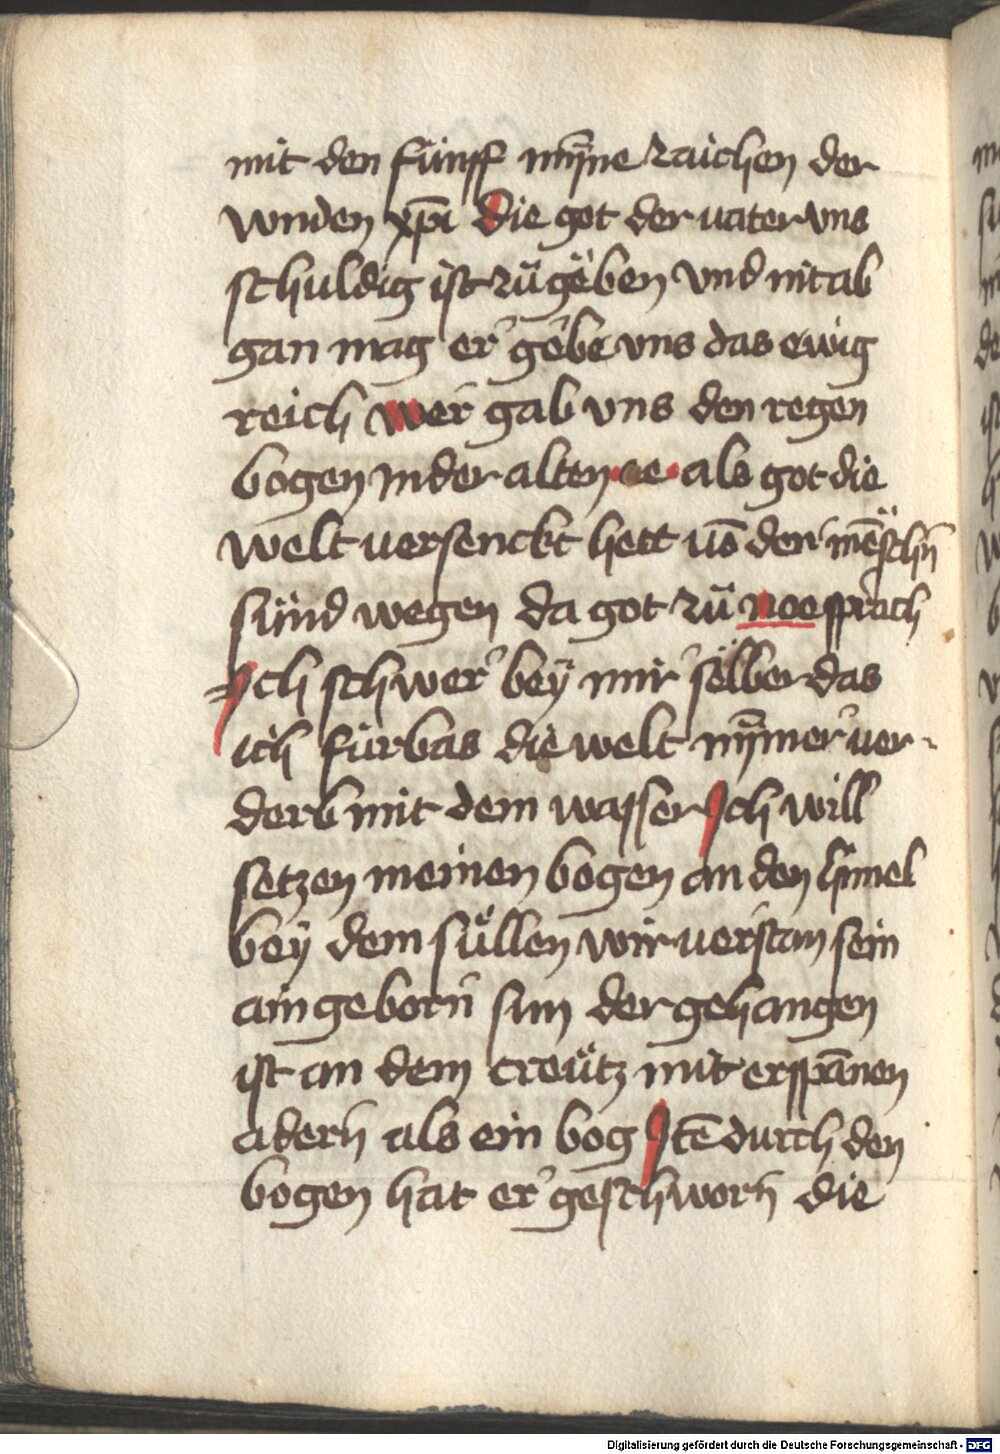 mit den fünff mȳne zaichen der
wnden xp̄i die got der uater vns
schuldig ist zügeben vnd nit ab
gan mag er gebe vns das ewig
reich wer gab vns den regen
bogen in der alten ee als got die
welt uersenckt hett uō der mēschn̄
sünd wegen da got zü noe sprach
Ich schwer bey mir sëlber das
ich fürbas die welt nȳmer uer-
derb mit dem wasser Ich will
setzen meinen bogen an den himel
bey dem süllen wir uerstan sein
aingeborn sun der gehangen
ist an dem creütz mit erspānen
adern als ein bog Itē durch den
bogen hat er geschworn die
Digitalisierung gefördert durch die Deutsche Forschungsgemeinschaft - DFG